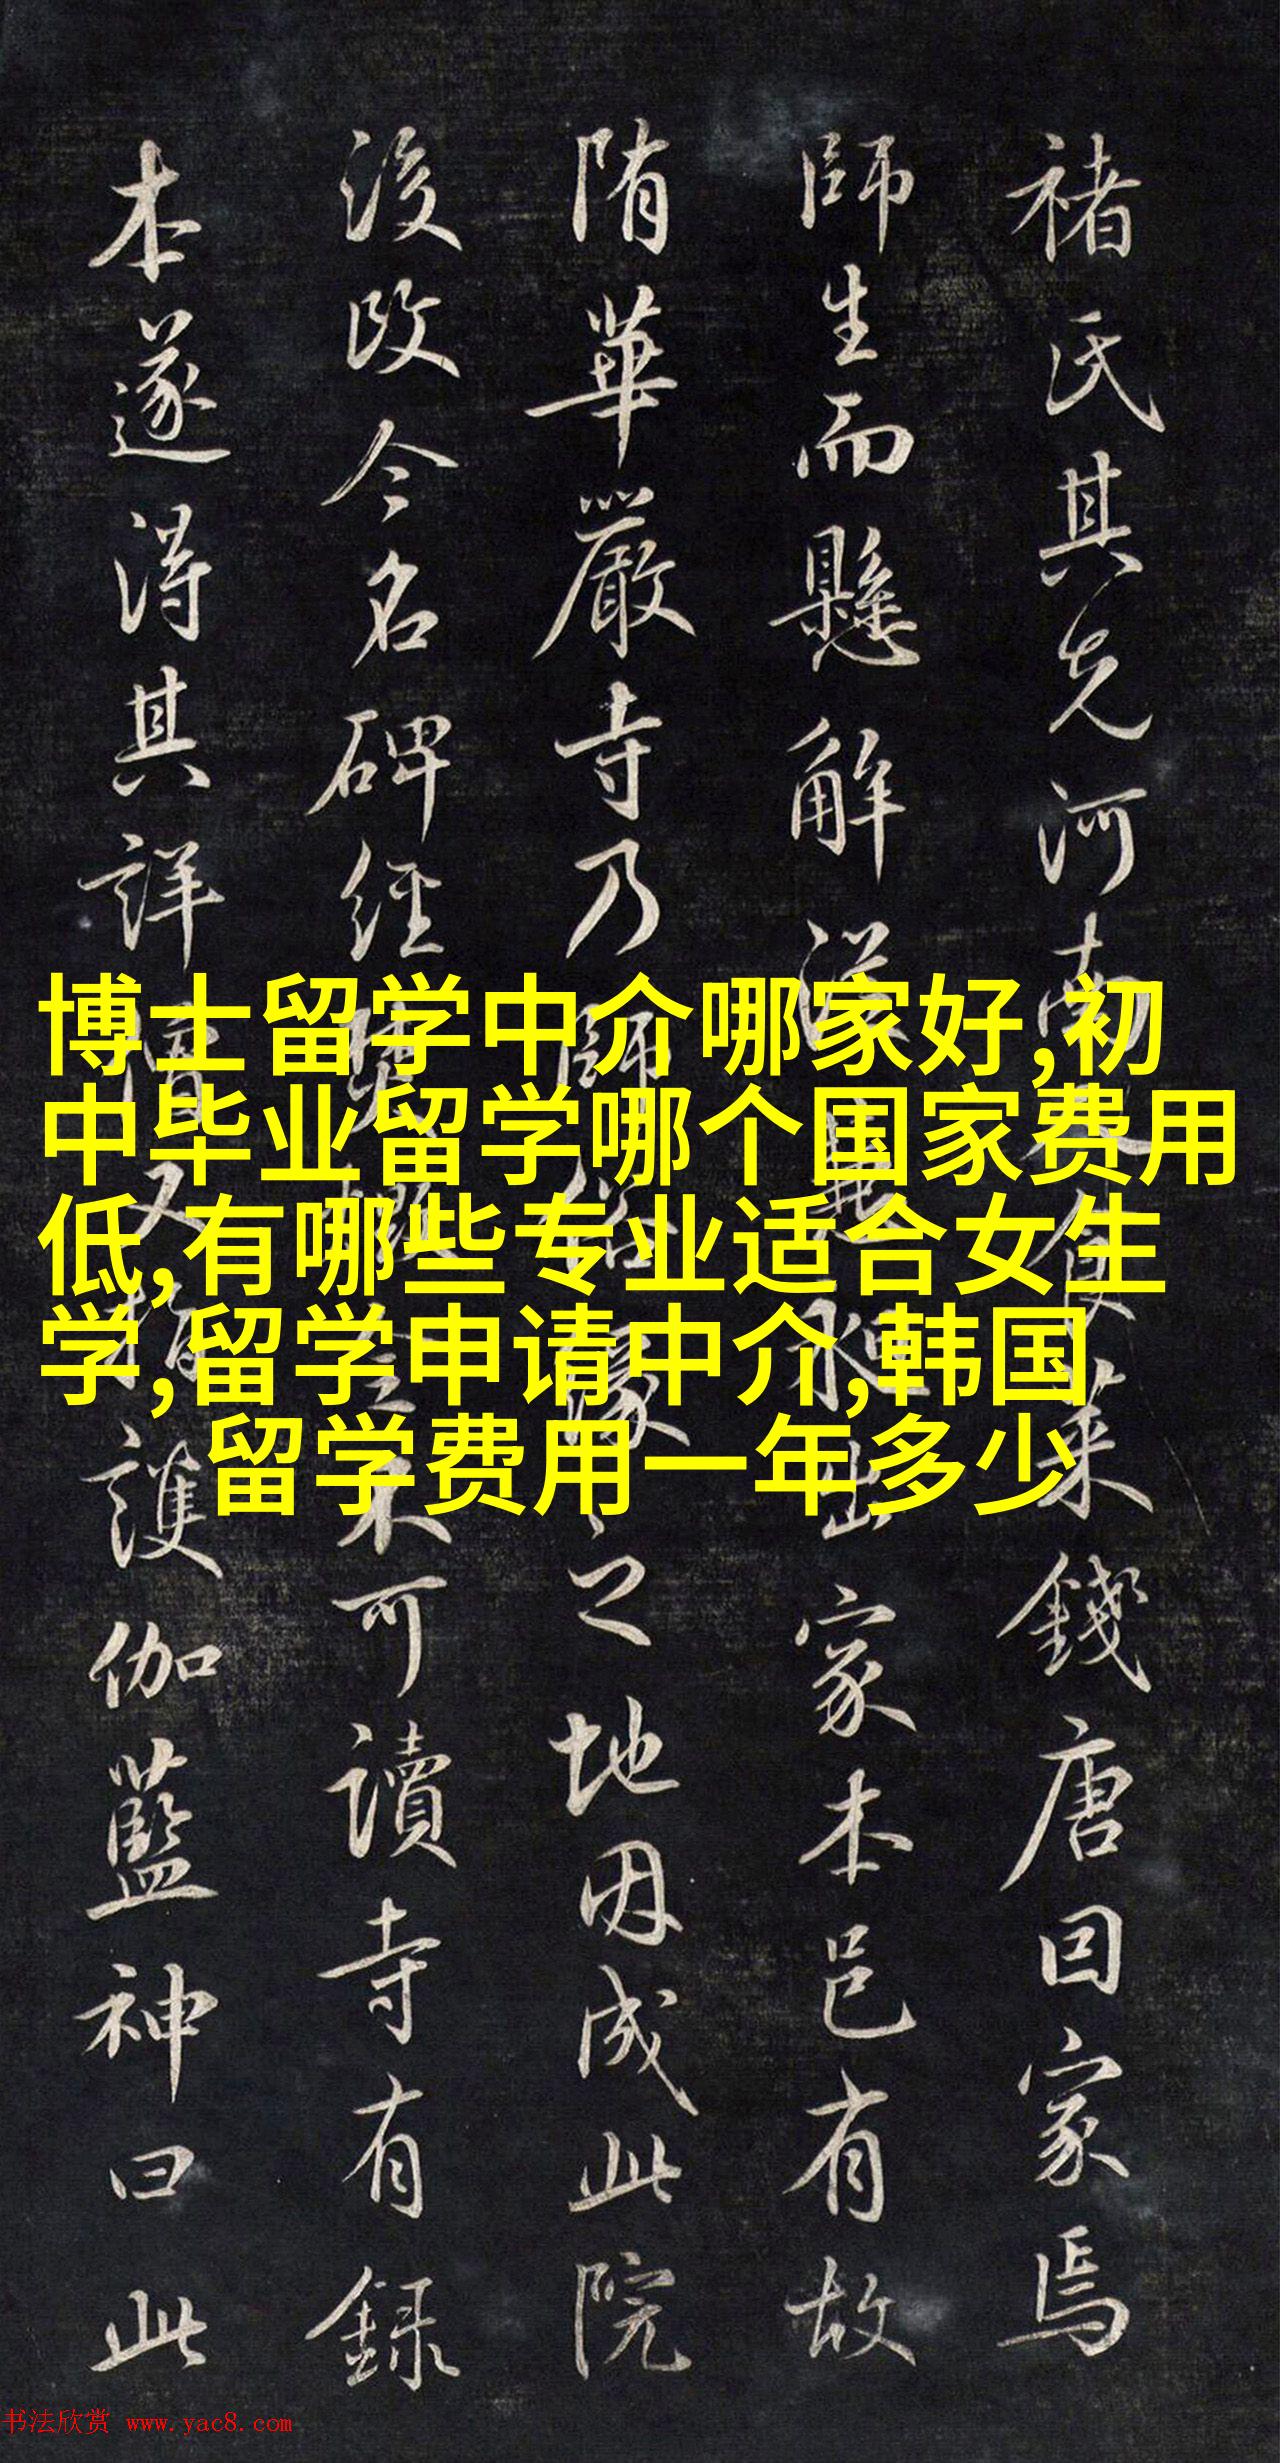 褚氏其先河南食菜錢唐囙家焉
師生而懸解深出家本邑有故
隋華嚴寺乃師之地因成此院
後改今名碑經不可讀寺有録
本遂得其詳僧又指護伽藍神曰此
博士留学中介哪家好,初
中毕业留学哪个国家费用
低,有哪些专业适合女生
学,留学申请中介,韩国
留学费用一年多少
书法欣赏 www.yac8.com